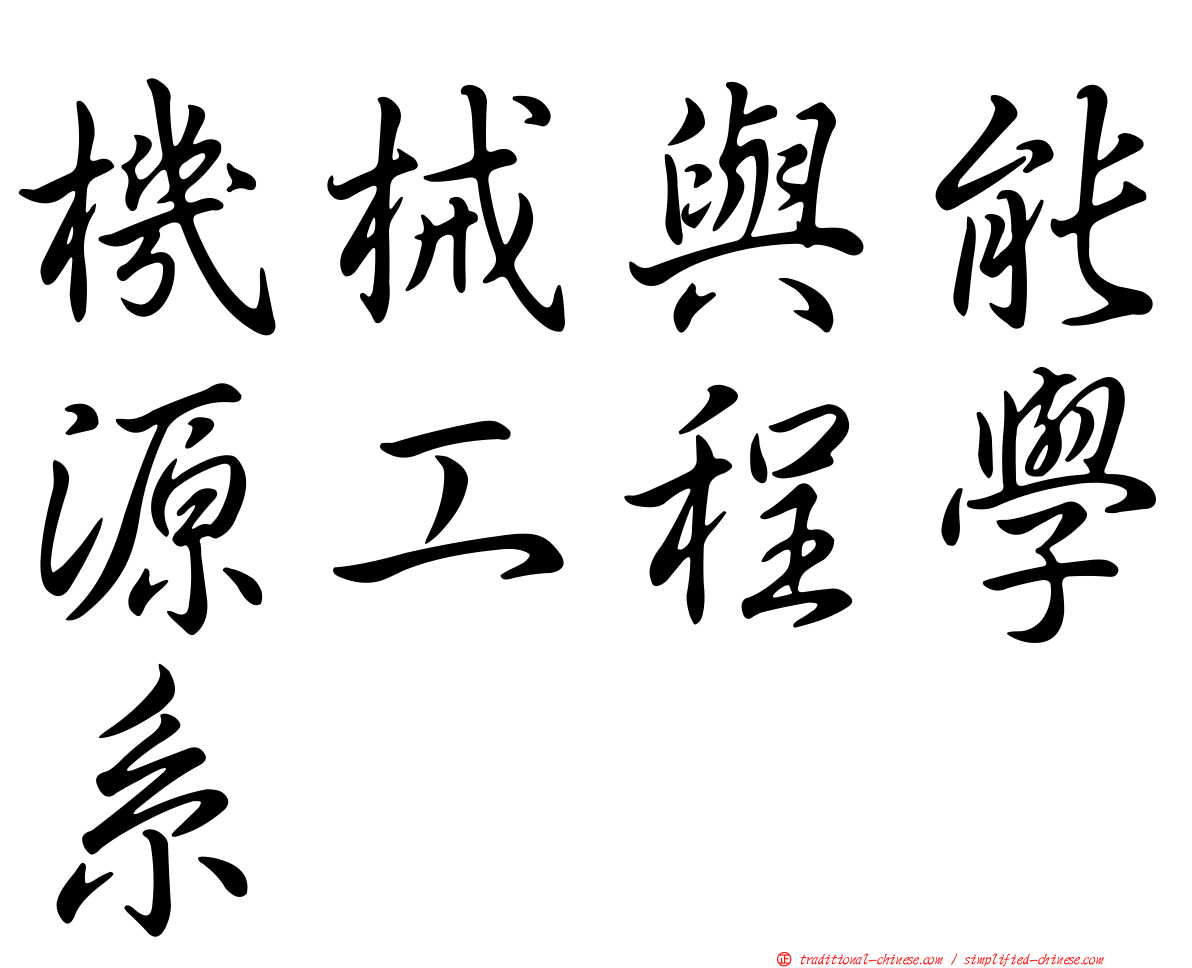 機械與能
源工程學
系
㊣ traditional-chinese.com / simplified-chinese.com